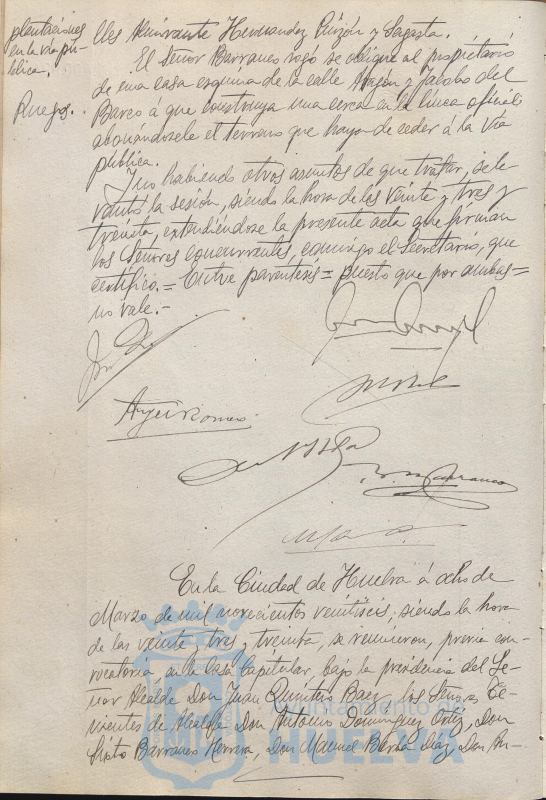 plantaciones
en la vía pú-
blica.
Ruegos.
lles Almirante Hernandez Pinzón y Sagasta.
El Señor Barranco rogó se obligue al propietario
de una casa esquina de la calle Aragón y Jacobo del
Barco á que construya una cerca en la linea oficial
abonándosele el terreno que haya de ceder á la vía
pública.
Y no habiendo otros asuntos de que tratar, se le-
vantó la sesión, siendo la hora de las veinte y tres y
treinta, extendiéndose la presente acta que firman
los Señores concurrentes, conmigo el Secretario, que
certifico.= Entre parentesis = puesto que por ambas =
no vale.-
En la Ciudad de Huelva á ocho de
Marzo de mil novecientos veintiseis, siendo la hora
de las veinte y tres y treinta, se reunieron, previa con-
vocatoria, en la Casa Capitular, bajo la presidencia del Se-
ñor Alcalde Don Juan Quintero Baez, los Señores Te-
nientes de Alcalde Don Antonio Dominguez Ortiz, Don
Sixto Barranco Herrera, Don Manuel Barba Díaz, Don
Ayuntamiento de
HUELVA